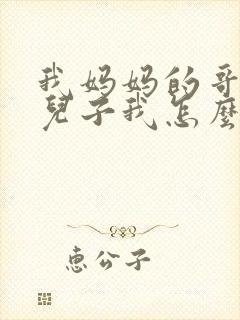 我妈妈的哥
兒子我怎麼
惠公子